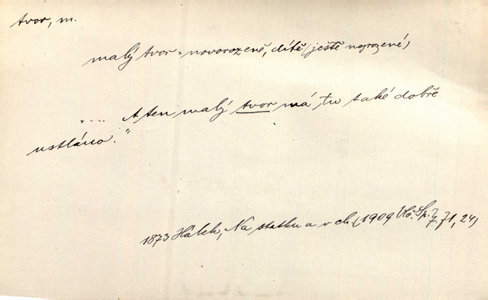 tvor, m.
malý tvor = novorozeně, dítě ještě nezrozené)
"... A ten malý tvor má tu také dobře
ustláno."
1873 Hálek, Na statku a v ch. (1909 Vb. Sp. 7, 71, 24)